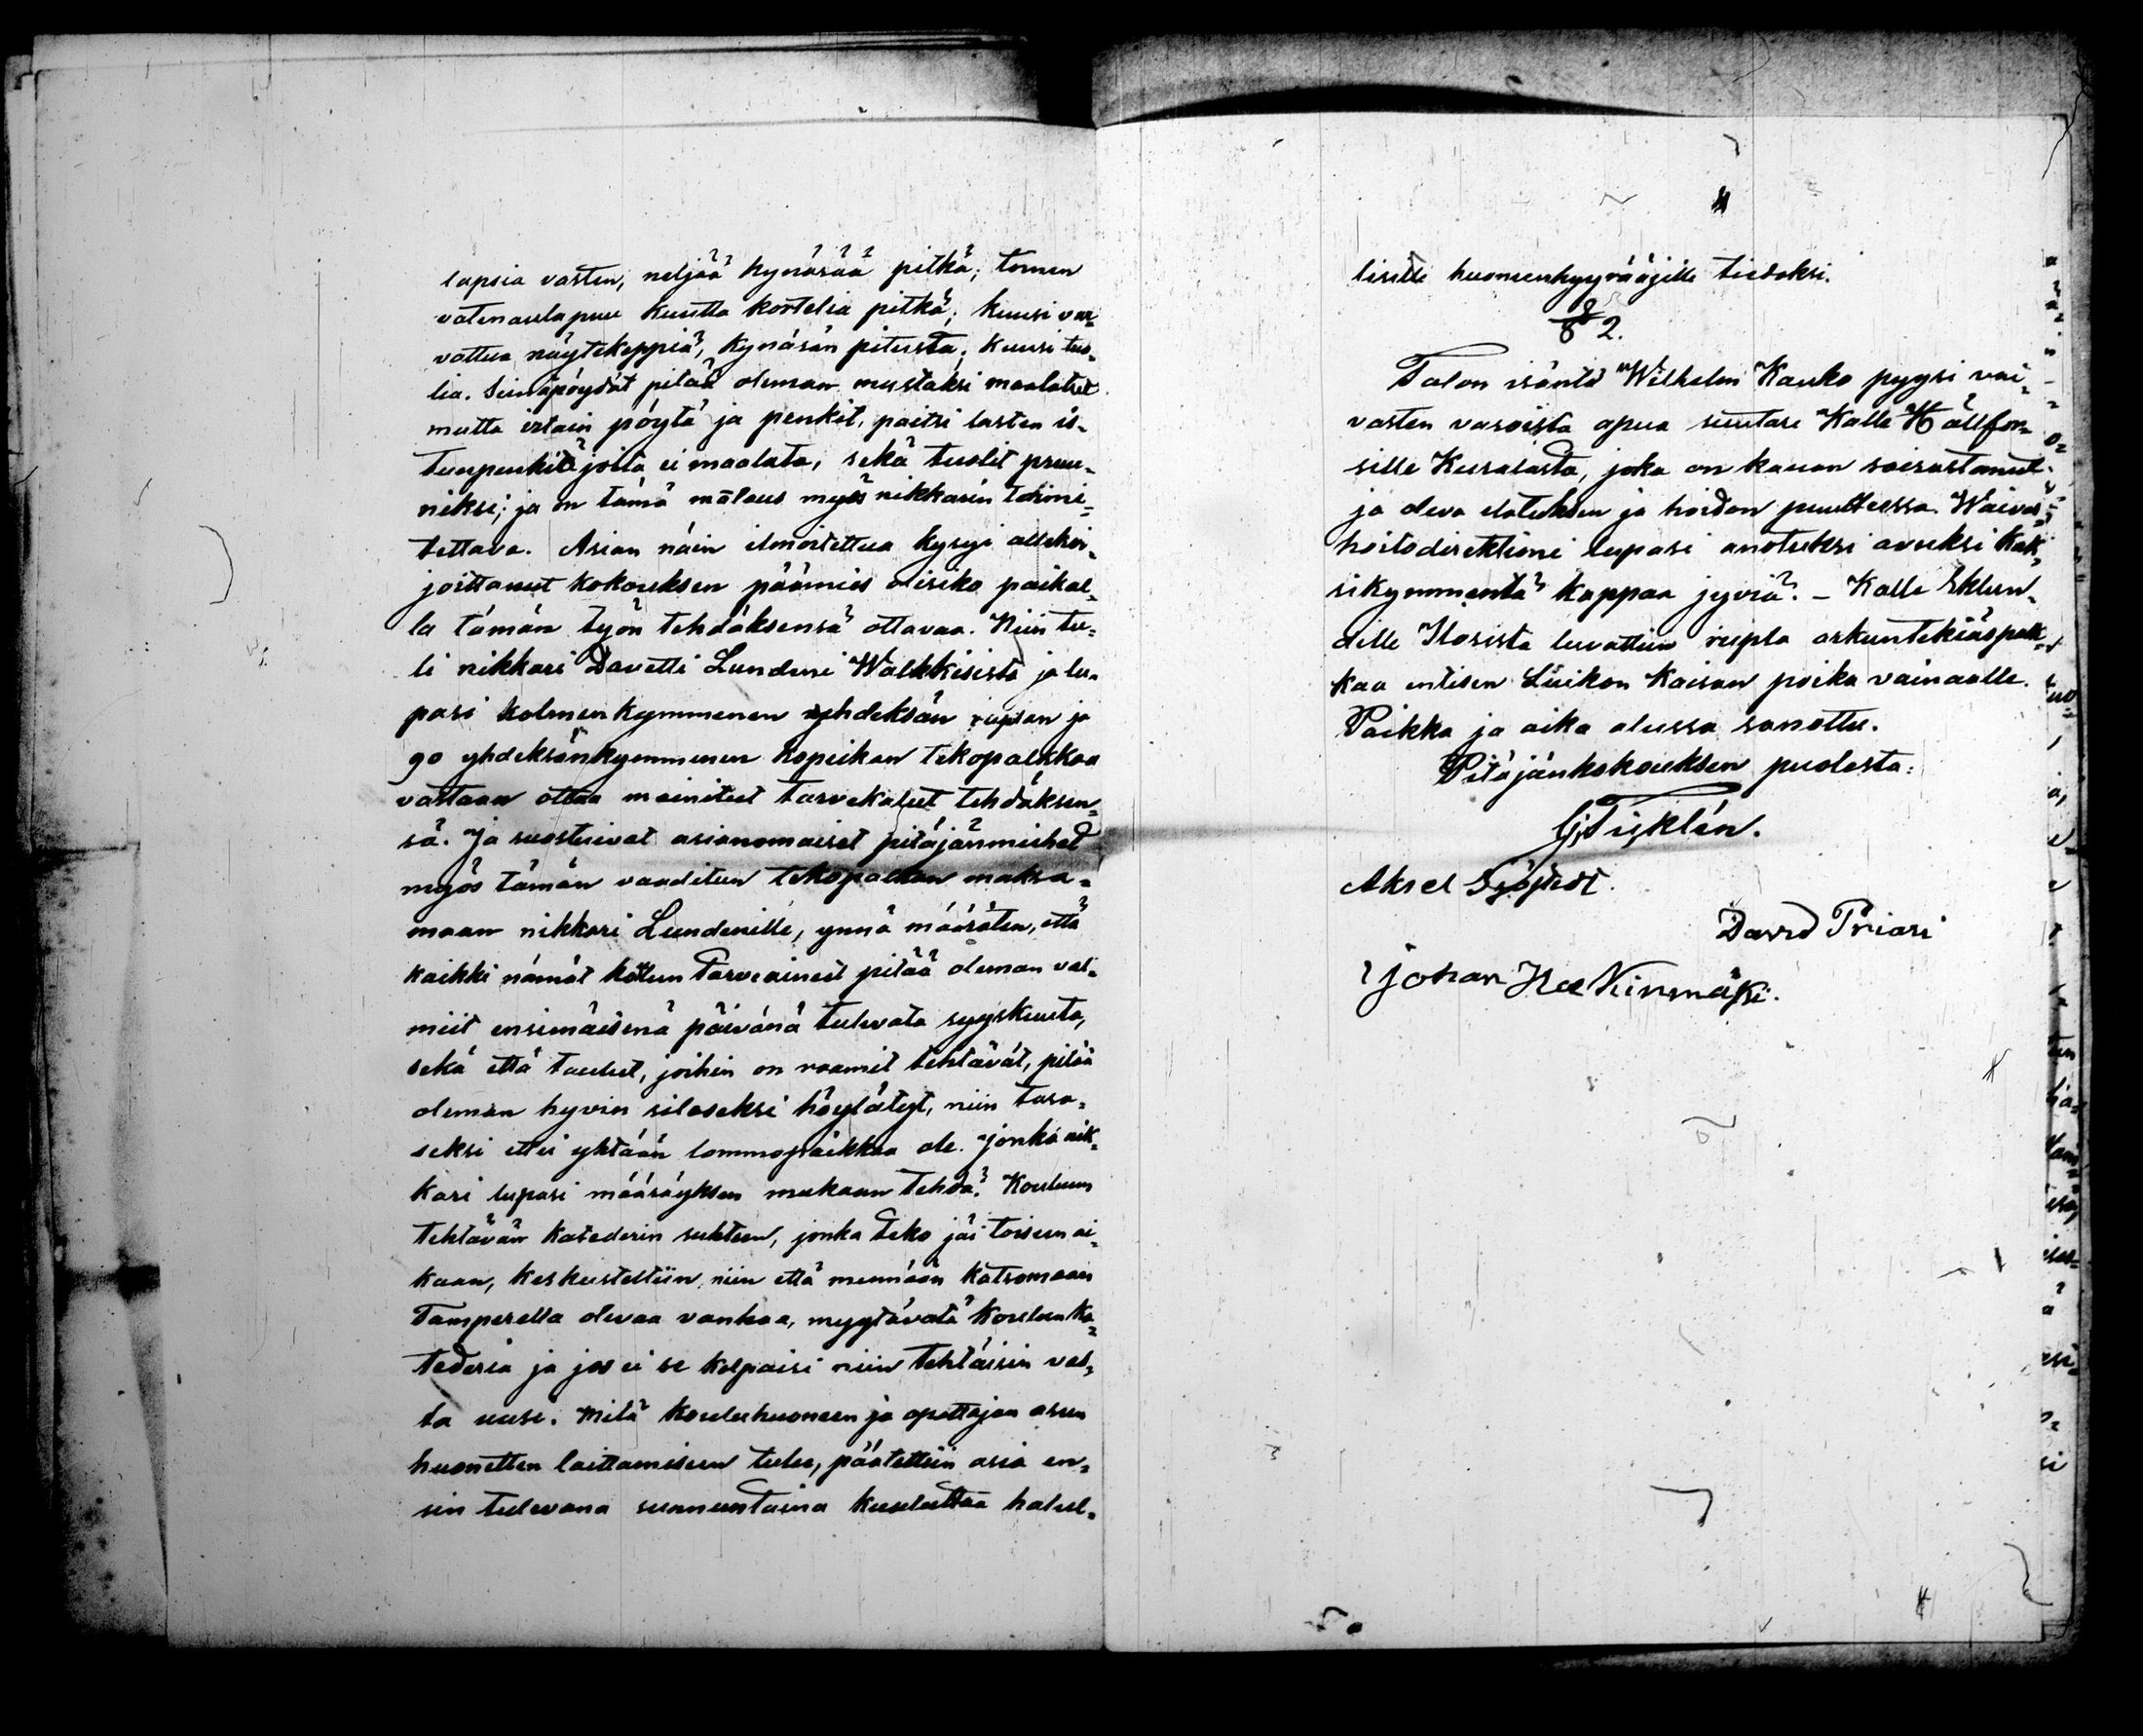 lapsia varten, neljää kynärää pitkä; toinen
vatenaulapuu kuutta kortelia pitkä; kuusi var-
vattua näytekeppiä, kynärän pitustä; kuusi tuo-
lia. Seinäpöydät pitää oleman mustaksi maalatut
mutta irtain pöytä ja penkit, paitsi lasten is-
tuupenkit joita ei maalata, sekä tuolit pruu-
niksi; ja on tämä mālaus myös nikkarin toimi-
tettava. Asian näin ilmoitettua kysyi allekir-
joittanut kokouksen päämies olisiko paikal-
la tämän työn tehdäksensä ottavaa. Niin tu-
li nikkari Davetti Lundeni Walkkisista ja lu-
pasi kolmenkymmenen yhdeksän ruplan ja
90 yhdeksänkymmenen kopeikan tekopalkkaa
vastaan ottaa mainitut tarvekalut tehdäksen-
sä. Ja suostuivat asianomaiset pitäjänmiehet
myös tämän vaaditun tekopalkan maksa-
maan nikkari Lundenille, ynnä määräten, että
kaikki nämät koulun tarveaineet pitää oleman val-
miit ensimäisenä päivänä tulevata syyskuuta,
sekä että taulut, joihin on raamit tehtävät, pitää
oleman hyvin sileseksi höylätyt, niin tasa-
seksi ettei yhtään lommopaikkaa ole. Jonka nik-
kari lupasi määräyksen mukaan tehdä. Kouluun
tehtävän katederin suhteen, jonka teko jäi toiseen ai-
kaan, keskusteltiin niin että mennään katsomaan
Tamperella olevaa vanhaa, myytävätä koulun ka-
tederia ja jos ei se kelpaisi niin tehtäisiin vas-
ta uusi. Mitä kouluhuoneen ja opettajan asun
huonetten laittamiseen tulee, päätettiin asia en-
sin tulevana sunnuntaina kuuluttaa halul-
lisille huoneenhyyrääjille tiedoksi.
§ 2.
Talon isäntä Wilhelm Kauko pyysi vai-
vasten varoista apua suutari Kalle Hällfor-
sille Kuralasta, joka on kauan sairastanut
ja oleva elatuksen ja hoidon puutteessa. Waivas-
hoitodirektioni lupasi anotuksi avuksi kak-
sikymmentä kappaa jyviä. – Kalle Eklun-
dille Ilosista luvattiin rupla arkuntekiäspalk-
kaa entisen Liikon Kaisan poika vainaalle.
Paikka ja aika alussa sanottu.
Pitäjänkokouksen puolesta:
Aksel Sjöstedt.
David Priari
Johan